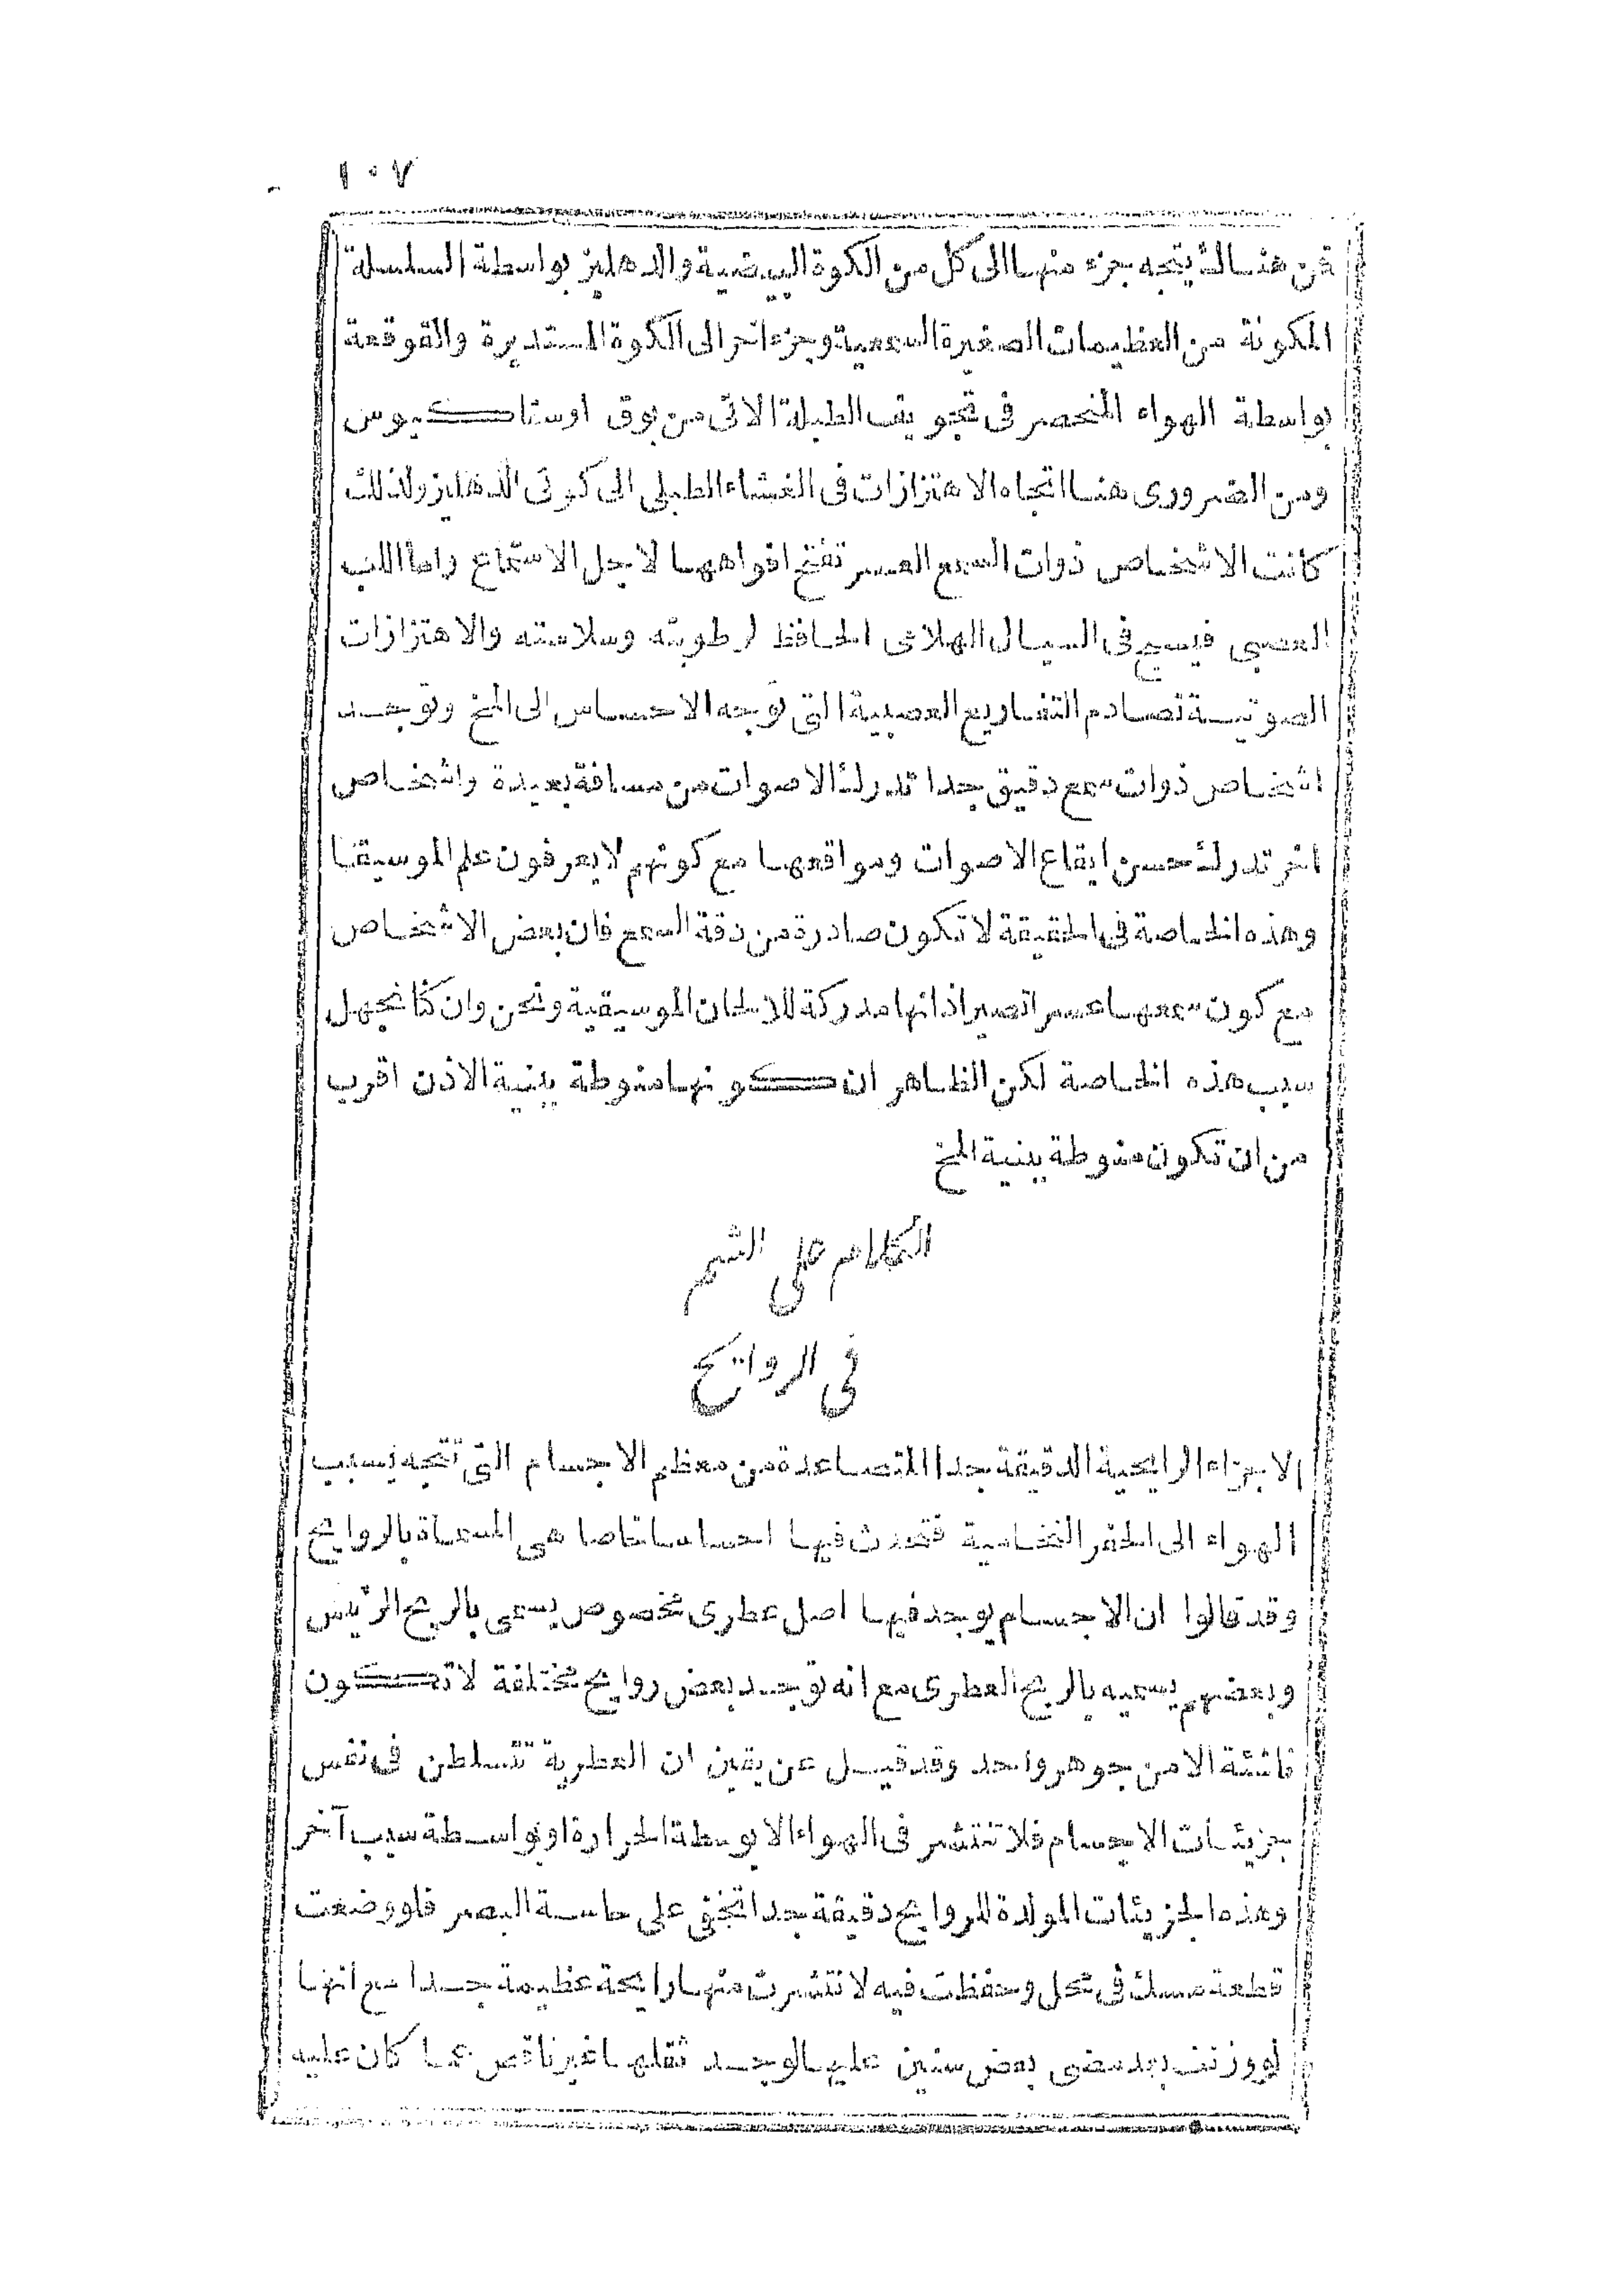 ١٠٧
فمن هنالك يتجه جزء منها الى كل من الكوة البيضية والدهليز بواسطة السلسلة
المكونة من العظيمات الصغيرة السمعية وجزء اخر الى الكوة المستديرة والقوقعة
بواسطة الهواء المنحصر فى تجويف الطبلة الاتى من بوق اوستاكيوس
ومن الضرورى هنا اتجاه الاهتزازات فى الغشاء الطبلى الى كوتى الدهليز ولذلك
كانت الاشخاص ذوات السمع العسر تفتح افواهها لاجل الاستماع واما اللب
العصبى فيسبح فى السيال الهلامى الحافظ لرطوبته وسلامته والاهتزازات
الصوتية تصادم التفاريع العصبية التى توجه الاحساس الى المخ وتوجد
اشخاص ذوات سمع دقيق جدا تدرك الاصوات من مسافة بعيدة واشخاص
اخر تدرك حسن ايقاع الاصوات ومواقعها مع كونهم لا يعرفون علم الموسيقا
وهذه الخاصة فى الحقيقة لا تكون صادرة من دقة السمع فان بعض الاشخاص
مع كون سمعها عسرا تصير اذانها مدركة للالحان الموسيقية ونحن وان كنا نجهل
سبب هذه الخاصة لكن الظاهر ان كونها منوطة ببنية الاذن اقرب
من ان تكون منوطة ببنية المخ
الكلام على الشم
فى الروايح
الاجزاء الرايحية الدقيقة جدا المتصاعدة من معظم الاجسام التى تتجه بسبب
الهواء الى الحفر النخامية فتحدث فيها احساسا خاصا هى المسماة بالروايح
وقد قالوا ان الاجسام يوجد فيها اصل عطرى مخصوص يسمى بالريح الرئيس
وبعضهم يسميه بالريح العطرى مع انه توجد بعض روايح مختلفة لا تكون
ناشئة الا من جوهر واحد وقد قيل عن يقين ان العطرية تتسلطن فى نفس
جزيئات الاجسام فلا تنتشر فى الهواء الا بوسطة الحرارة او بواسطة سبب آخر
وهذه الجزيئات المولدة للروايح دقيقة جدا تخفى على حاسة البصر فلو وضعت
قطعة مسك فى محل وحفظت فيه لانتشرت منها رايحة عظيمة جدا مع انها
لو وزنت بعد مضى بعض سنين عليها لوجد ثقلها غير ناقص عما كان عليه